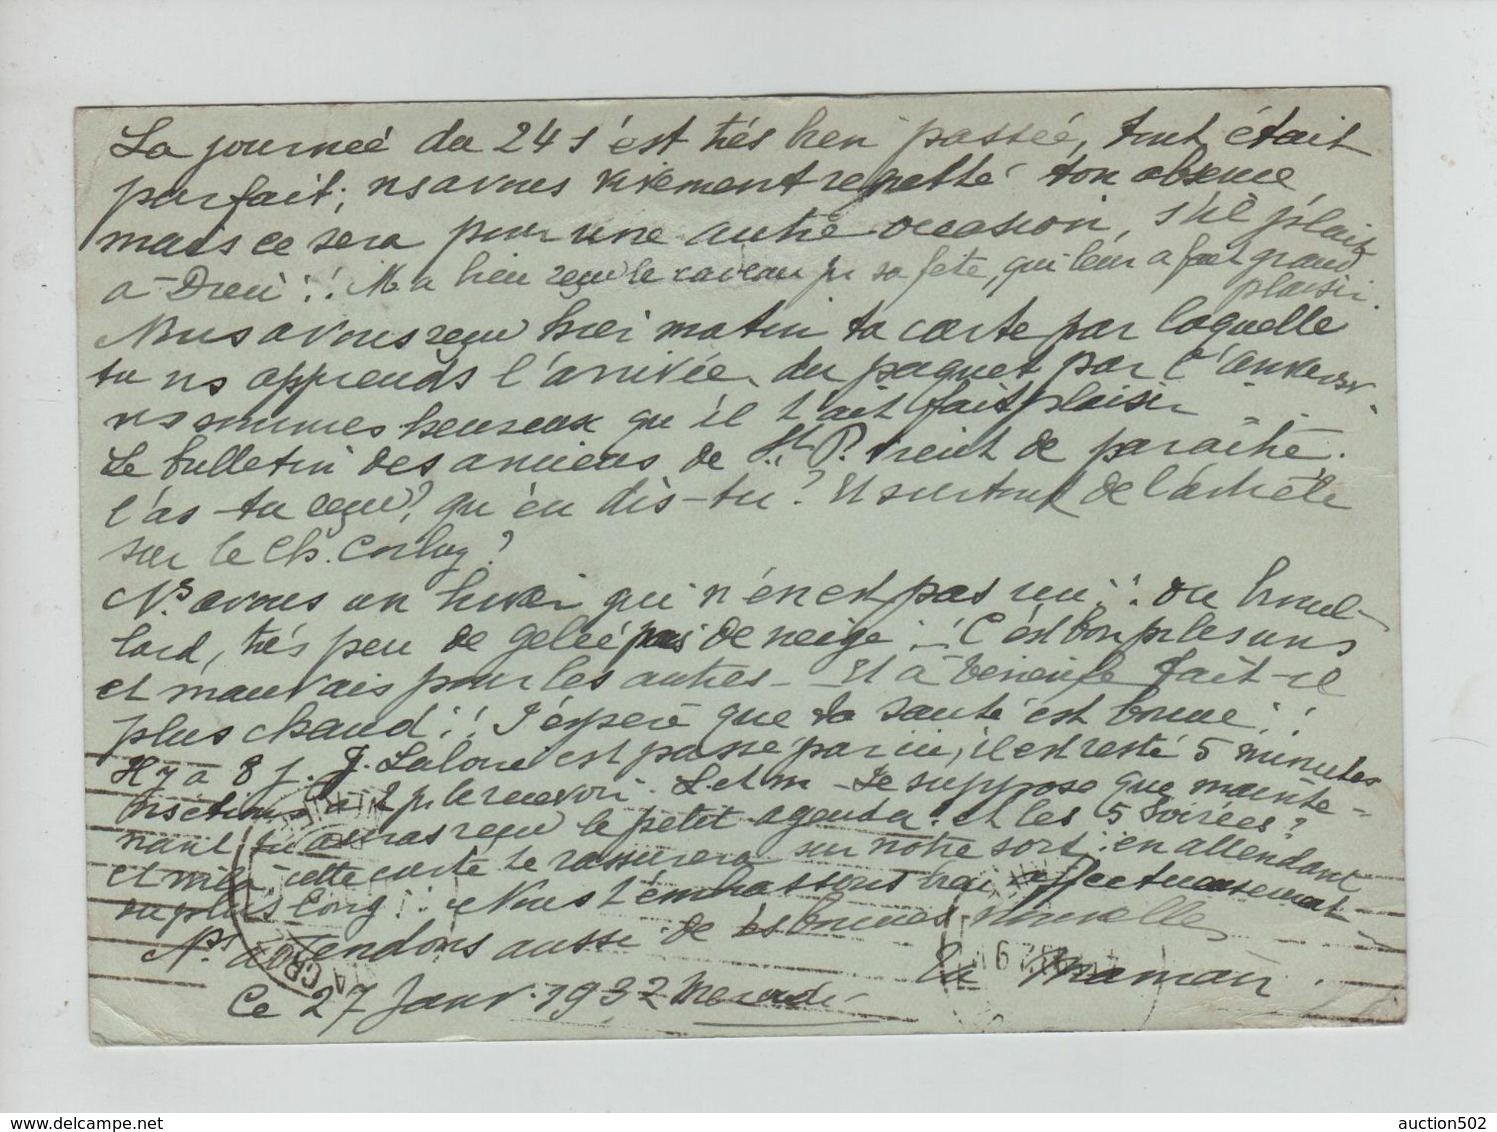 La journée du 24 s'est très bien passée, tout était
parfait; ns avons vivement regretté ton absence
mais ce sera pour une autre occasion, s'il plaît
à Dieu!! M. a bien reçu le caveau pr sa fête, qui leur a fait grand
plaisir.
Nous avons reçu hier matin ta carte par laquelle
tu ns apprends l'arrivée du paquet par l'Anversv.
ns sommes heureux qu'il t'ait fait plaisir
Le bulletin des anciens de St P. vient de paraître.
l'as-tu reçu?, qu'en dis-tu? Et surtout de l'article
sur le Ch. Corluy?
Ns avons un hiver qui n'en est pas un!! ou brouil-
lard, très peu de gelée pas de neige! C'est bon pr les uns
et mauvais pour les autres - Et à Ténérife fait-il
plus chaud!! J'espère que ta santé est bonne!!
Il y a 8 j. J. Lalou est passé par ici, il est resté 5 minutes
ns étions ns 2 pr le recevoir. L. et m - Je suppose que mainte-
nant tu auras reçu le petit agenda et les 5 Soirées?
et cette carte te rassurera sur notre sort: en attendant
plus long!! Nous t'embrassons bien affectueusement
Ns attendons aussi de tes bonnes nouvelles
Ta Maman.
Ce 27 Janv. 1932 Mercredi
auction502